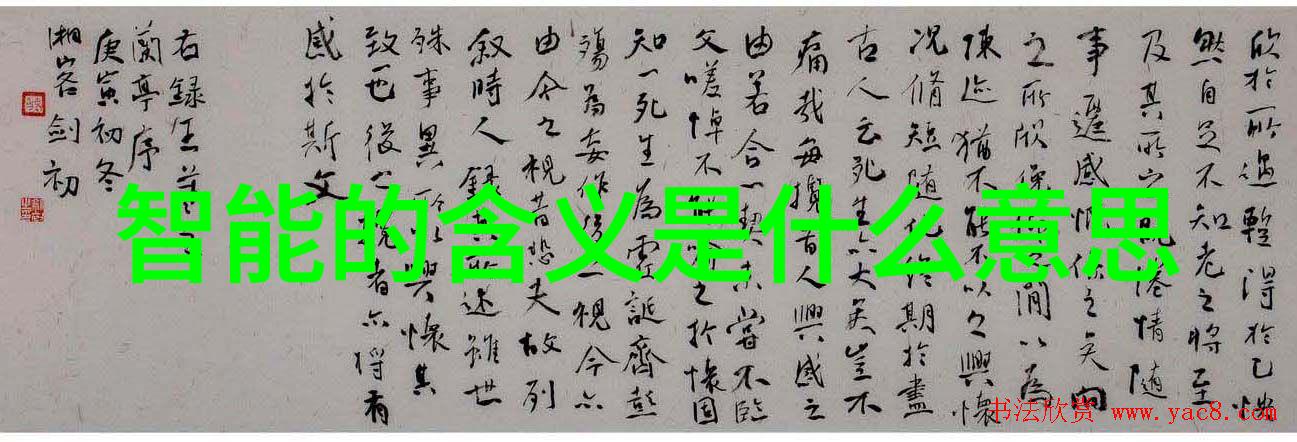 欣於一所遇蹔得於己快
然自足不知老之將至
及其所之既倦情隨
事遷感慨係之矣向
之所欣俛仰之間以為
陳迹猶不能不以之興懷
況脩短隨化終期於盡
古人云死生亦大矣豈不
痛哉每攬昔人興感之
由若合一契未嘗不臨
文嗟悼不能喻之於懷固
知一死生為虛誕齊彭
殤為妄作後之視今亦
由今之視昔悲夫故列
敘時人錄其所述雖世
殊事異所以興懷其
致一也後之覽者亦將有
感於斯文
右錄王羲之
蘭亭序
庚寅初冬
湘山客劍初
智能的含义是什么意思
书法欣赏 www.yac8.com